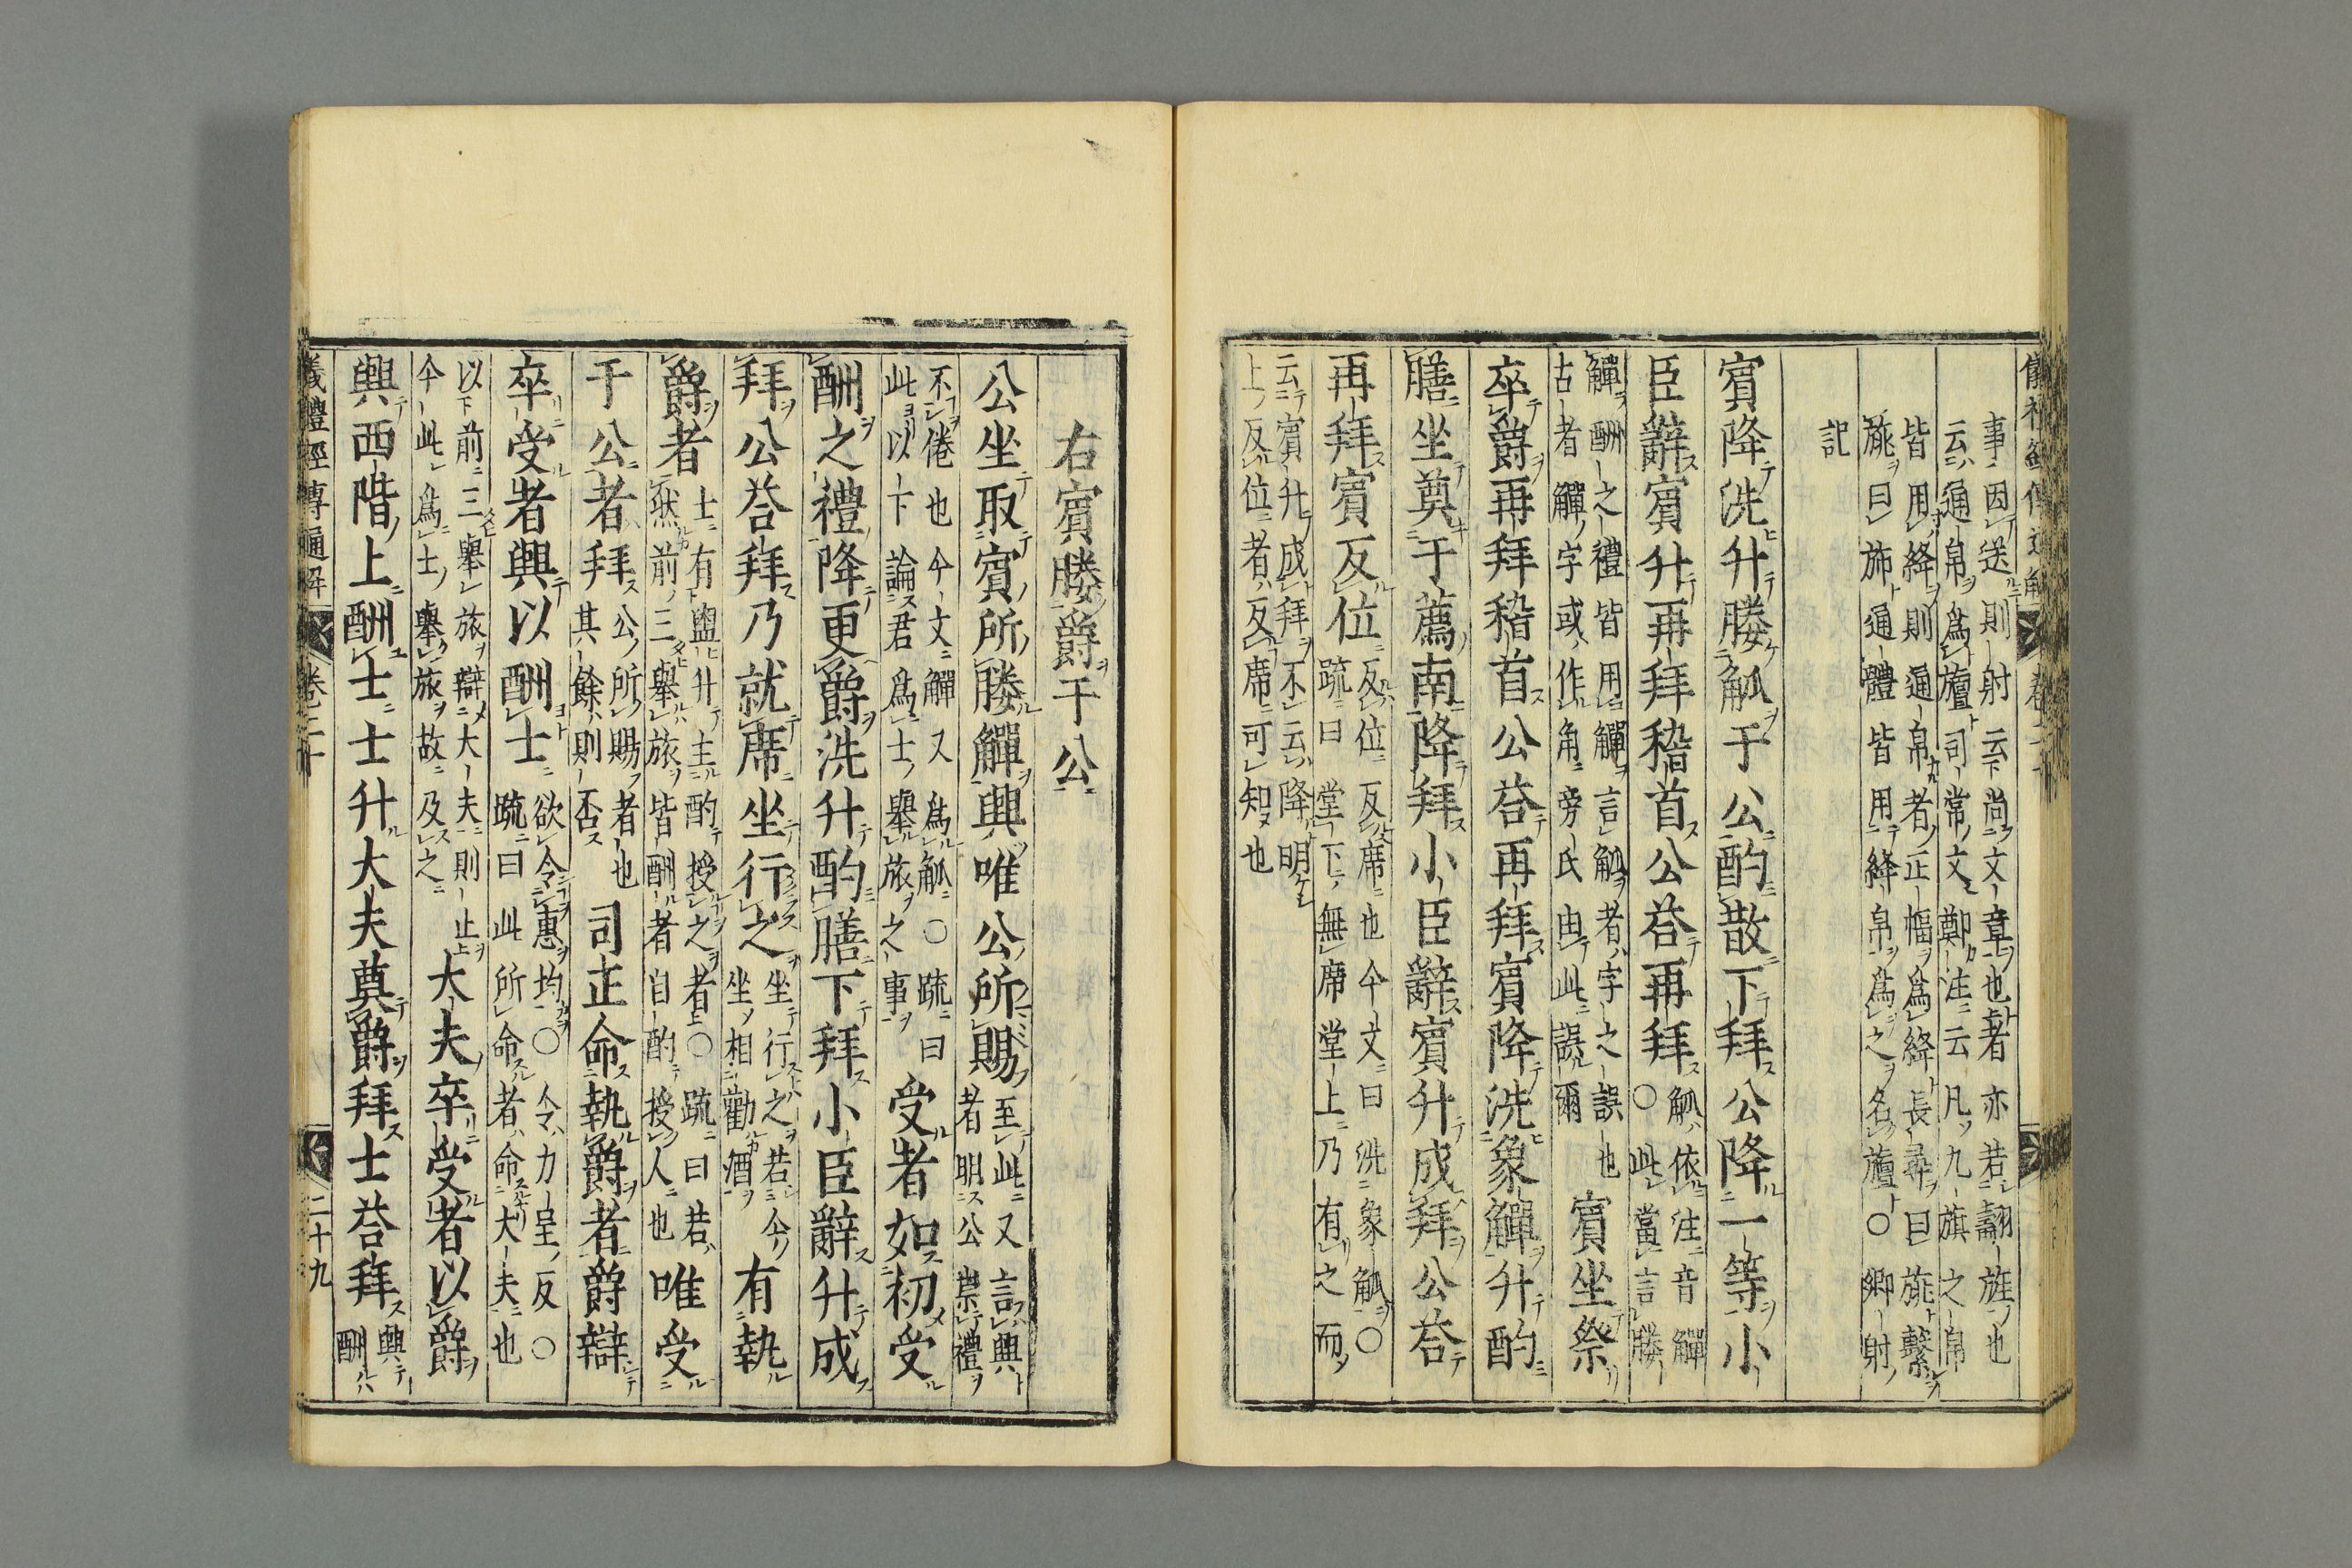 事因送則射云尚文章也者亦若翿旌也
云通帛爲旜司常文鄭注云凡九旗之帛
皆用絳則通帛者正幅爲絳長尋曰旐繫
旐曰旆通體皆用絳帛爲之名旜○鄉射
記
賓降洗升媵觚于公酌散下拜公降一等小
臣辭賓升再拜稽首公荅再拜
觚依注音觶
○此當言媵
觶酬之禮皆用觶言觚者字之誤也
古者觶字或作角旁氏由此誤爾
賓坐祭
卒爵再拜稽首公荅再拜賓降洗象觶升酌
膳坐奠于薦南降拜小臣辭賓升成拜公荅
再拜賓反位
反位反席也今文曰洗象觚○
疏曰堂下無席堂上乃有之而
云賓升成拜不云降明
上反位者反席可知也
右賓媵爵于公
公坐取賓所媵觶興唯公所賜
至此又言興
者明公崇禮
不倦也今文觶又爲觚○疏曰
此以下論君爲士舉旅之事
受者如初受
酬之禮降更爵洗升酌膳下拜小臣辭升成
拜公荅拜乃就席坐行之
坐行之若今
坐相勸酒
有執
爵者
士有盥升主酌授之者○疏曰若
然前三舉旅皆酬者自酌授人也
唯受
于公者拜
公所賜者也
其餘則否
司正命執爵者爵辯
卒受者興以酬士
欲令惠均○令力呈反○
疏曰此所命者命大夫也
以下前三舉旅辯大夫則止
今此爲士舉旅故及之
大夫卒受者以爵
興西階上酬士士升大夫奠爵拜士荅拜
興
酬
儀禮經傳通解
卷二十
二十九